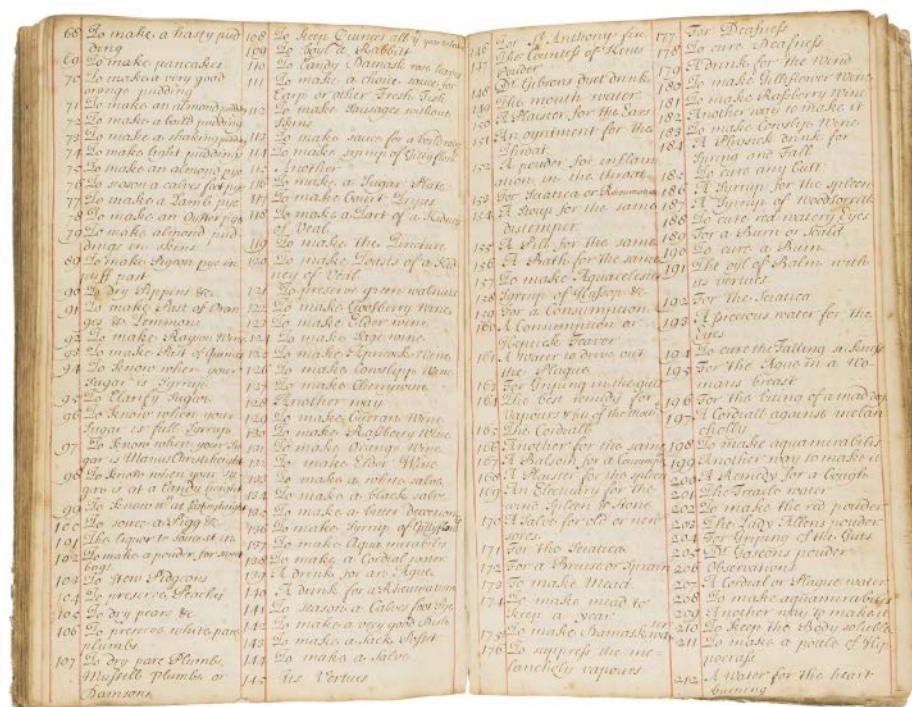 68 To make a hasty pud
ding
69 To make pancakes
70 To make a very good
orange pudding
71 To make an almond pudding
72 To make a boild pudding
73 To make a shaking pudding
74 To make light puddings
75 To make an almond pye
76 To season a calves foot pye
77 To make a Lamb pye
78 To make an Oyster pye
79 To make almond pud
dings in skins
89 To make Pigeon pye in
puff past
90 To dry Pippins &c
91 To make Past of Oran
ges & Lemmons
92 To make Rayson Wine
93 To make Past of
94 To know when your
Sugar is Syrrup
95 To Clarify Sugar
96 To know when your
Sugar is full Syrrup
97 To know when your Su
gar is Manus Christi height
98 To know when your Su
gar is at a Candy height
99 To know
100 To souce a Pigg &c
101 The liquor to souce it in
102 To make a powder for sweet
bags
103 To Stew Pidgeons
104 To preserve Peaches
105 To dry pears &c
106 To preserve white pare
plumbs
107 To dry pare Plumbs
Mussell plumbs or
Damsons
108 To keep Quinces all
109 To boyl a Rabbit
110 To Candy Damask rose leaves
111 To make a choice sauce for
Carp or other Fresh Fish
112 To make Sausages without
skins
113 To make sauce for a
114 To make syrup of Gillyflow
115 Another
116 To make a Sugar Plate
117 To make Court
118 To make a Tart of a Kidney
of Veal
119 To make the Tincture
120 To make Toasts of a Kid
ney of Veal
121 To preserve green walnuts
122 To make Goosberry Wine
123 To make Elder wine
124 To make Sage wine
125 To make Apricock Wine
126 To make Cowslipp Wine
127 To make Cherrywine
128 Another way
129 To make Curran Wine
130 To make Rasberry Wine
131 To make Orange Wine
132 To make Elder Wine
133 To make a white salve
134 To make a black salve
135 To make a bitter decoction
136 To make Syrrup of
137 To make Aqua mirabilis
138 To make a Cordial water
139 A drink for an Ague
140 A drink for a Rheumatism
141 To season a Calves foot Pye
142 To make a very good
143 To make a Sack Posset
144 To make a Salve
145 Its Vertues
146 For St Anthonys fire
147 The Countess of Kents
Powder
148 Dr Gibsons Dyet drink
149 The mouth water
150 A Plaister for the Ears
151 An oyntment for the
Throat
152 A powder for inflam
ation in the throat
153 For Sciatica or Rheumatism
154 A Stoup for the same
distemper
155 A Pill for the same
156 A Bath for the same
157 To make Aquacelestis
158 Syrrup of Hyssop &c
159 For a Consumption
160 A Consumption or
Hectick Feavor
161 A Water to drive out
the Plague
163 For Griping in the guts
164 The best remidy for
Vapours & fits of the Mother
165 The Cordiall
166 Another for the same
167 A Balsom for a Consumption
168 A Plaister for the spleen
169 An Electuary for the
wind Spleen & Stone
170 A Salve for old or new
sores
171 For the Sciatica
172 For a Bruise or Sprain
173 To make Mead
174 To make mead to
keep a year
175 To make Damask water
176 To suppress the me
lancholy vapours
177 For Deafness
178 To cure Deafness
179 A drink for the Wind
180 To make Gilliflower Wine
181 To make Rasberry Wine
182 Another way to make it
183 To make Cowslip Wine
184 A Physick drink for
Spring and Fall
185 To cure any Cutt
186 A Syrrup for the spleen
187 A Syrrup of Woodsorrell
188 To cure red watery Eyes
189 For a Burn or Scald
190 To cure a Burn
191 The oyl of Balm with
its vertues
192 For the Sciatica
193 A precious water for the
Eyes
194 To cure the Falling sickness
195 For the Ague in a Wo
mans breast
196 For the biting of a mad dog
197 A Cordiall against melan
cholly
198 To make aquamirabilis
199 Another way to make it
200 A Remedy for a Cough
201 The Treacle water
202 To make the red powder
203 The Lady Allens powder
204 For Griping of the Guts
205 Dr Gascons powder
206 Observations
207 A Cordial or Plague water
208 To make aquamirabilis
209 Another way to make it
210 To keep the Body soluble
211 To make a pottle of Hip
pocrass
212 A Water for the heart
burning